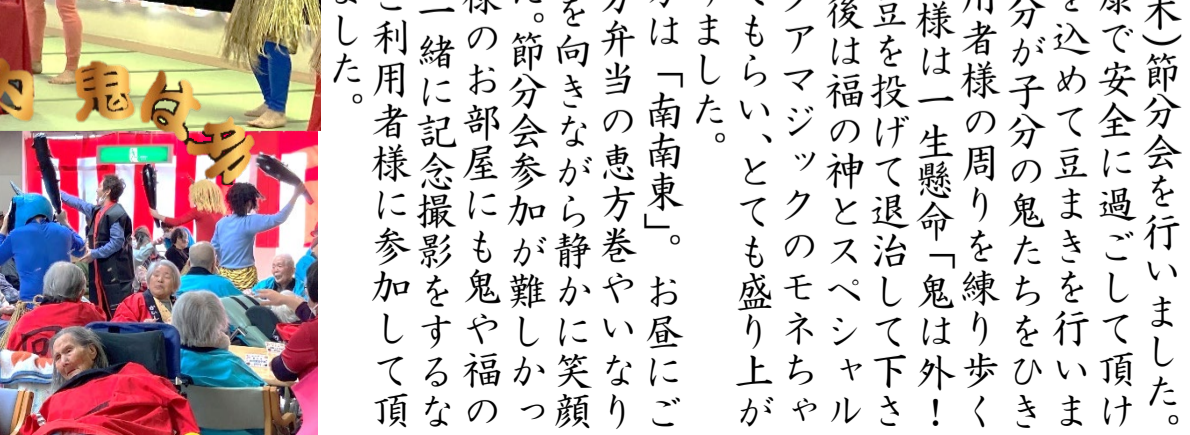 木）節分会を行いました。
康で安全に過ごして頂け
を込めて豆まきを行いま
分が子分の鬼たちをひき
用者様の周りを練り歩く
様は一生懸命「鬼は外！
豆を投げて退治して下さ
後は福の神とスペシャル
ツアマジックのモネちゃ
てもらい、とても盛り上が
りました。
は「南南東」。お昼にご
弁当の恵方巻やいなり
を向きながら静かに笑顔
た。節分会参加が難しかっ
様のお部屋にも鬼や福の
一緒に記念撮影をするな
ご利用者様に参加して頂
ました。
内 鬼は外